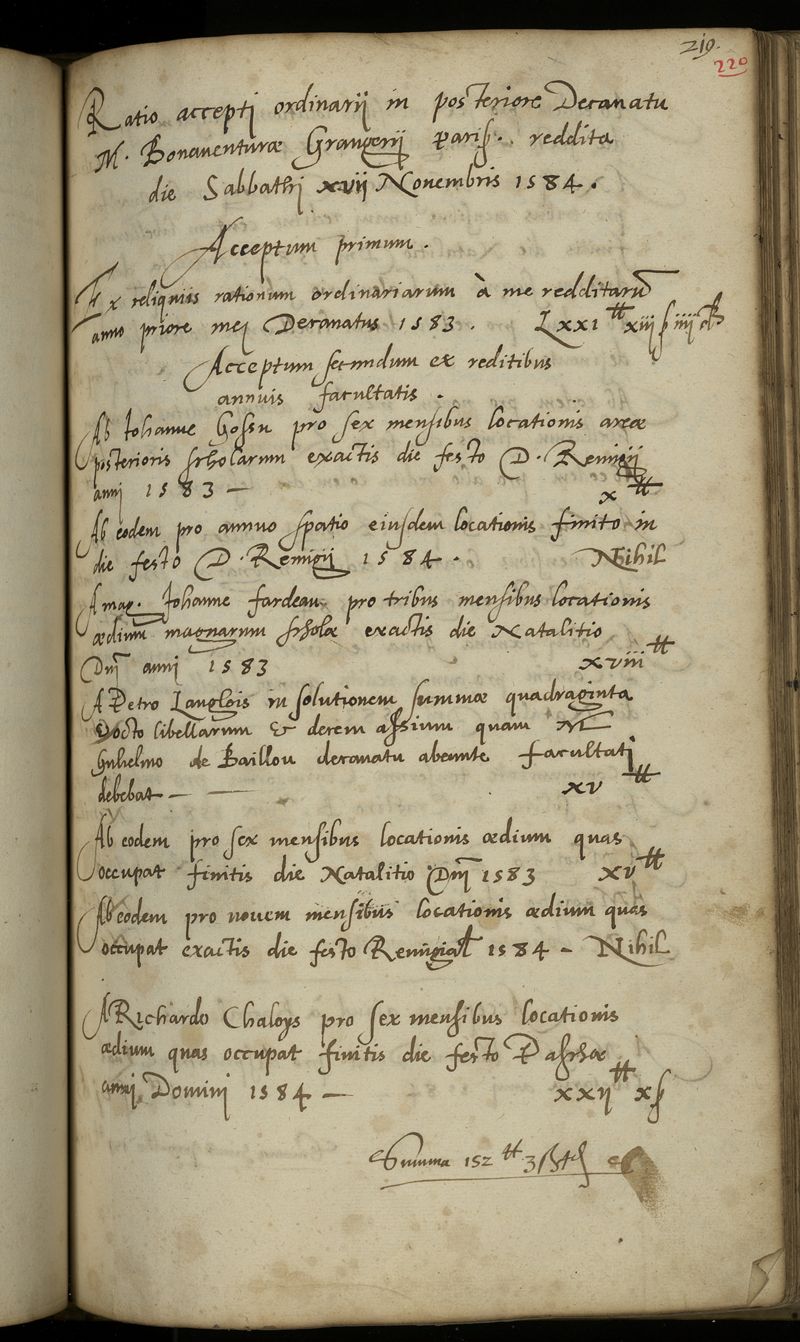 219.
220
Ratio accepti ordinarij in posteriore Decanatu
M. Bonaventuræ Grangerij Paris. reddita
die Sabbathi xvij Novembris 1584.
Acceptum primum.
Ex reliquiis rationum ordinariarum à me redditarū
anno priore mei Decanatus 1583. Lxxi ₶ xiij ß iiij d
Acceptum secundum ex reditibus
annuis facultatis.
Ab Iohanne Gossu pro sex mensibus locationis areæ
posterioris scholarum exactis die festo D. Remigij
anni 1583 — x ₶
Ab eodem pro annuo spatio eiusdem locationis finito in
die festo D. Remigij 1584. Nihil
A mag. Iohanne fardeau pro tribus mensibus locationis
ædium magnarum scholæ exactis die Natalitio
Dnī anni 1583 xviii ₶
A Petro Langlois in solutionem summæ quadraginta
octo libellarum & decem assium quam M
Gulielmo de Baillou decanatu abeunte facultati
debebat — xv ₶
Ab eodem pro sex mensibus locationis ædium quas
occupat finitis die Natalitio Dnī 1583 xv ₶
Ab eodem pro novem mensibus locationis ædium quas
occupat exactis die festo Remigial 1584 - Nihil
A Richardo Chaloys pro sex mensibus locationis
ædium quas occupat finitis die festo Paschæ
anni Domini 1584 — xxij ₶ x ß
Summa 152 ₶ 3 ß 4 d